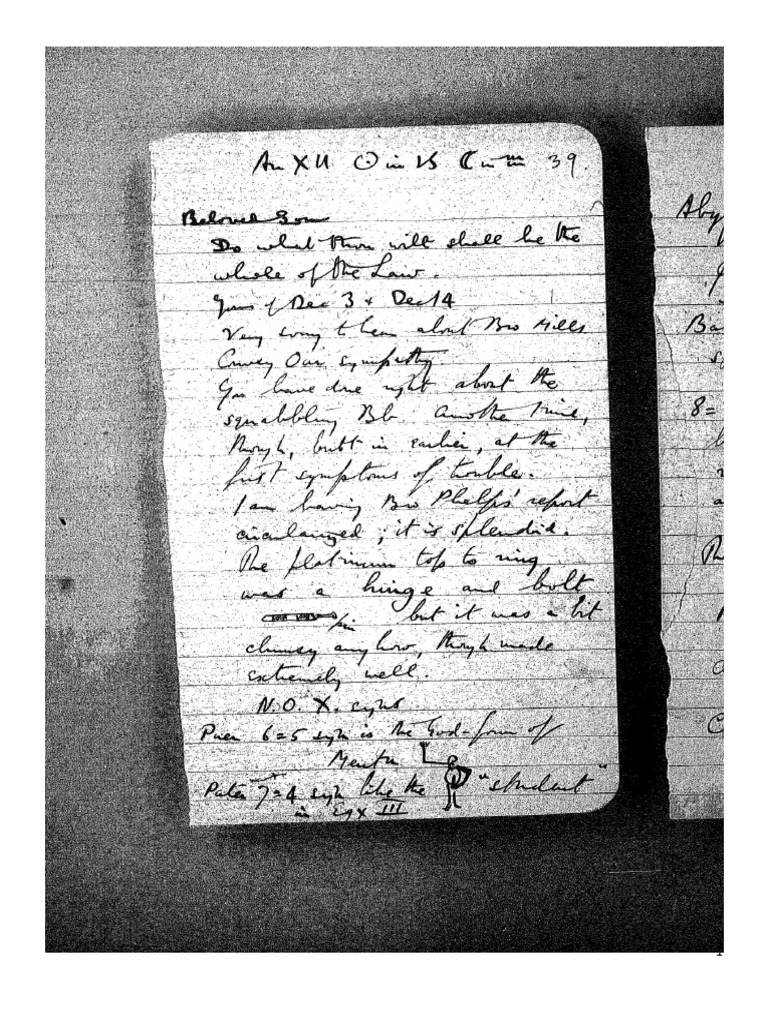 An XII ☉ in ♑ ☾ in ♏ 39.
Beloved Son
Do what thou wilt shall be the
whole of the Law.
Yours of Dec 3 & Dec 14
Very sorry to hear about Bro Hills
Convey Our sympathy.
You have done right about the
squabbling Bb. Another time,
though, butt in earlier, at the
first symptoms of trouble.
I am having Bro Phelps' report
circularized; it is splendid.
The platinum top to ring
was a hinge and bolt
pin but it was a bit
clumsy anyhow, though made
extremely well.
N.O.X. signs
Puer 6=5 sign is the God-form of
Mentu
Pater 7=4 sign like the "student"
in Eqx III
Aby
Ba
8=